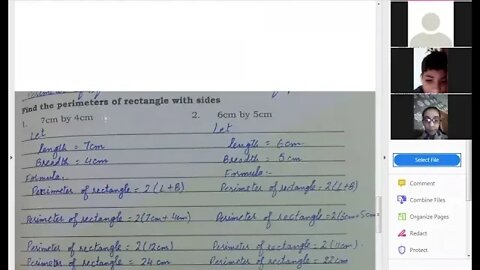 Find the perimeters of rectangle with sides
1. 7cm by 4cm
Let
length = 7cm
Breadth = 4cm
Formula:-
Perimeter of rectangle = 2(L+B)
Perimeter of rectangle = 2(7cm + 4cm)
Perimeter of rectangle = 2(12cm)
Perimeter of rectangle = 24 cm
2. 6cm by 5cm
Let
length = 6cm
Breadth = 5cm
Formula:-
Perimeter of rectangle = 2(L+B)
Perimeter of rectangle = 2(6cm+5cm
Perimeter of rectangle = 2(11cm)
Perimeter of rectangle = 22cm
Select File
Comment
Combine Files
Organize Pages
Redact
Protect